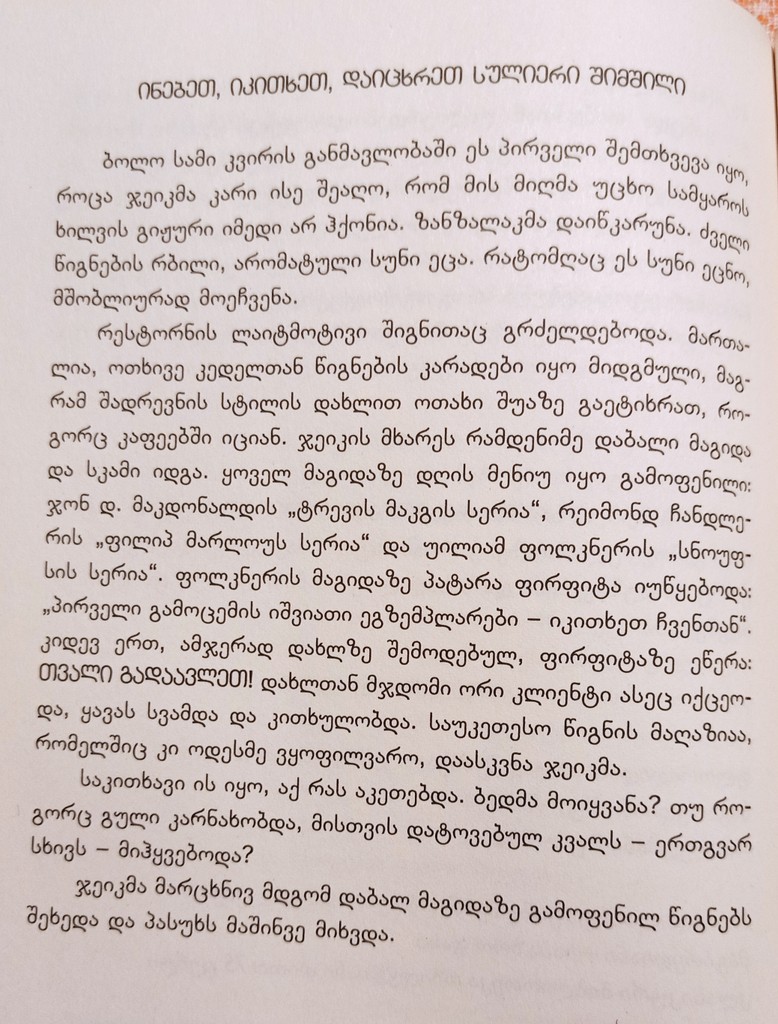 ინებეთ, იკითხეთ, დაიცხრეთ სულიერი შიმშილი
ბოლო სამი კვირის განმავლობაში ეს პირველი შემთხვევა იყო,
როცა ჯეიკმა კარი ისე შეაღო, რომ მის მიღმა უცხო სამყაროს
ხილვის გიჟური იმედი არ ჰქონია. ზანზალაკმა დაიწკარუნა. ძველი
წიგნების რბილი, არომატული სუნი ეცა. რატომღაც ეს სუნი ეცნო,
მშობლიურად მოეჩვენა.
რესტორნის ლაიტმოტივი შიგნითაც გრძელდებოდა. მართა-
ლია, ოთხივე კედელთან წიგნების კარადები იყო მიდგმული, მაგ-
რამ შადრევნის სტილის დახლით ოთახი შუაზე გაეტიხრათ, რო-
გორც კაფეებში იციან. ჯეიკის მხარეს რამდენიმე დაბალი მაგიდა
და სკამი იდგა. ყოველ მაგიდაზე დღის მენიუ იყო გამოფენილი:
ჯონ დ. მაკდონალდის „ტრევის მაკგის სერია“, რეიმონდ ჩანდლე-
რის „ფილიპ მარლოუს სერია“ და უილიამ ფოლკნერის „სნოუფ-
სის სერია“. ფოლკნერის მაგიდაზე პატარა ფირფიტა იუწყებოდა:
„პირველი გამოცემის იშვიათი ეგზემპლარები – იკითხეთ ჩვენთან“.
კიდევ ერთ, ამჯერად დახლზე შემოდებულ, ფირფიტაზე ეწერა:
თვალი გადაავლეთ! დახლთან მჯდომი ორი კლიენტი ასეც იქცეო-
და, ყავას სვამდა და კითხულობდა. საუკეთესო წიგნის მაღაზიაა,
რომელშიც კი ოდესმე ვყოფილვარო, დაასკვნა ჯეიკმა.
საკითხავი ის იყო, აქ რას აკეთებდა. ბედმა მოიყვანა? თუ რო-
გორც გული კარნახობდა, მისთვის დატოვებულ კვალს – ერთგვარ
სხივს – მიჰყვებოდა?
ჯეიკმა მარცხნივ მდგომ დაბალ მაგიდაზე გამოფენილ წიგნებს
შეხედა და პასუხს მაშინვე მიხვდა.